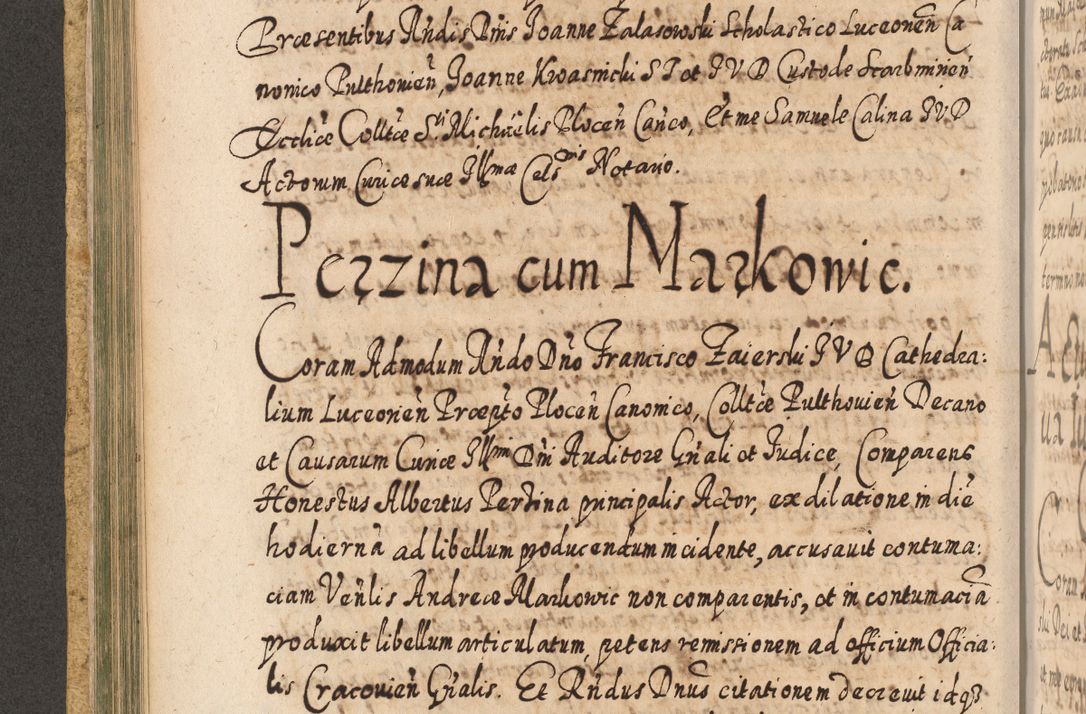 Præsentibus Rńdis Dńis Joanne Zalasowski Scholastico Luceoneń Ca
nonico Pulthovień, Joanne Kwasnicki S T et J V D Custode Scarbminień
Ecclićæ Colltće Sti Michaelis Płoceń Cańco, Et me Samuele Calina J V D
Actorum Curiæ suæ Illmæ Celsnis Notario.
Perzzina cum Markowic.
Coram Admodum Rńdo Dńo Francisco Zaierski J V D Cathedra:
lium Luceorień Præpto Płoceń Canonico, Colltće Pulthovień Decano
et Causarum Curiæ Illmi Dńi Auditore Gńali et Judice, Comparens
Honestus Albertus Perzina principalis Actor, ex dilatione in diē
hodiernā ad libellum producendum incidente, accusavit contuma:
ciam Veńlis Andreæ Markowic non comparentis, et in contumaciā
produxit libellum articulatum, petens remissionem ad officium Officia:
lis Cracovień Gńalis. Et Rńdus Dnus citationem decrevit idqȝ